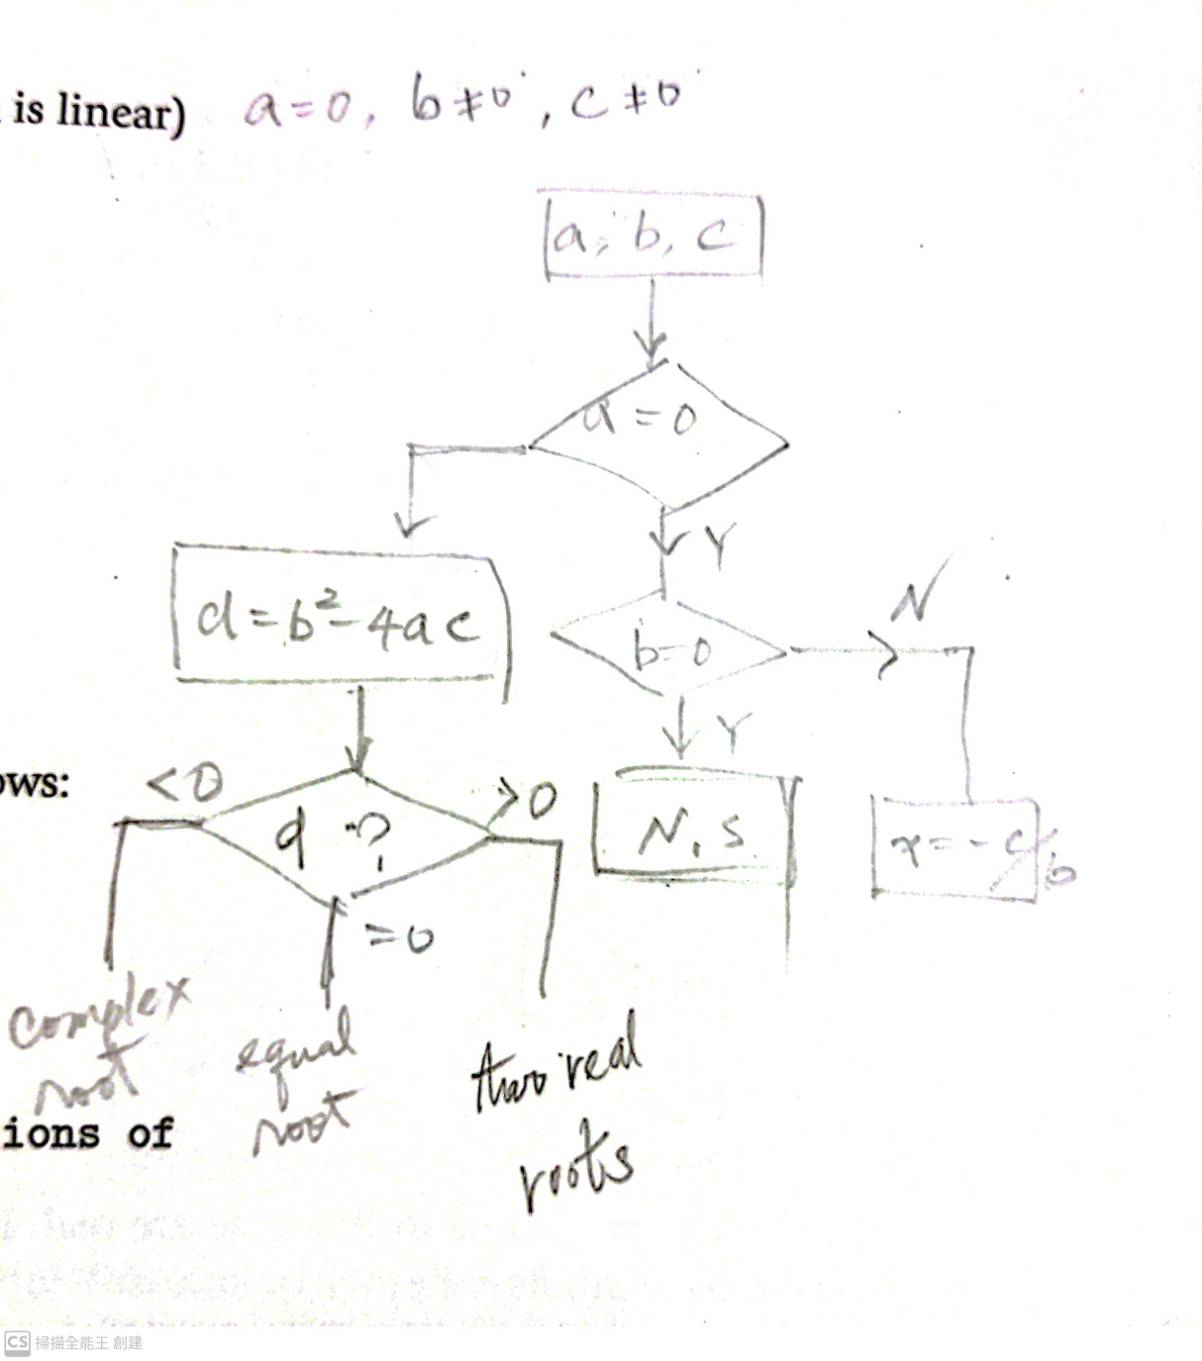 is linear) a=0, b≠0, c≠0
a, b, c
a=0
Y
d=b²-4ac
N
b=0
Y
ows:
<0
>0
d?
N.S.
x=-c/b
=0
complex
root
equal
root
two real
roots
ions of
CS 掃描全能王 創建